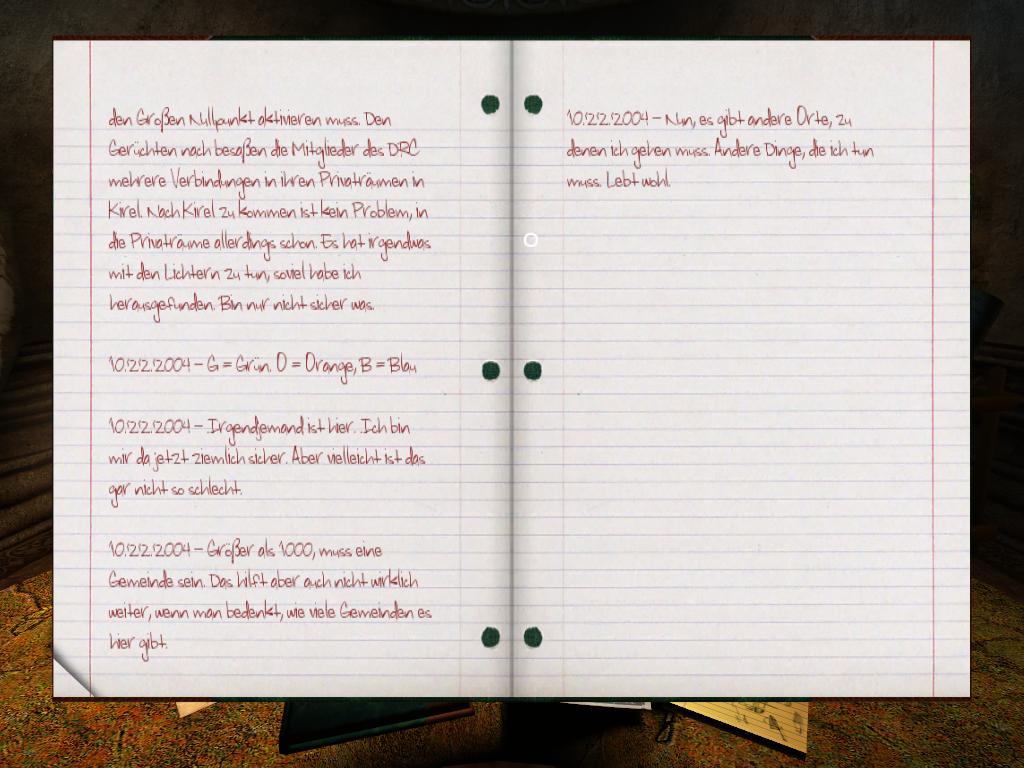 den Großen Nullpunkt aktivieren muss. Den
Gerüchten nach besaßen die Mitglieder des DRC
mehrere Verbindungen in ihren Privaträumen in
Kirel. Nach Kirel zu kommen ist kein Problem, in
die Privaträume allerdings schon. Es hat irgendwas
mit den Lichtern zu tun, soviel habe ich
herausgefunden. Bin nur nicht sicher was.
10.22.2004 – G = Grün. O = Orange, B = Blau
10.22.2004 – Irgendjemand ist hier. Ich bin
mir da jetzt ziemlich sicher. Aber vielleicht ist das
gar nicht so schlecht.
10.22.2004 – Größer als 1000, muss eine
Gemeinde sein. Das hilft aber auch nicht wirklich
weiter, wenn man bedenkt, wie viele Gemeinden es
hier gibt.
10.22.2004 – Nun, es gibt andere Orte, zu
denen ich gehen muss. Andere Dinge, die ich tun
muss. Lebt wohl.